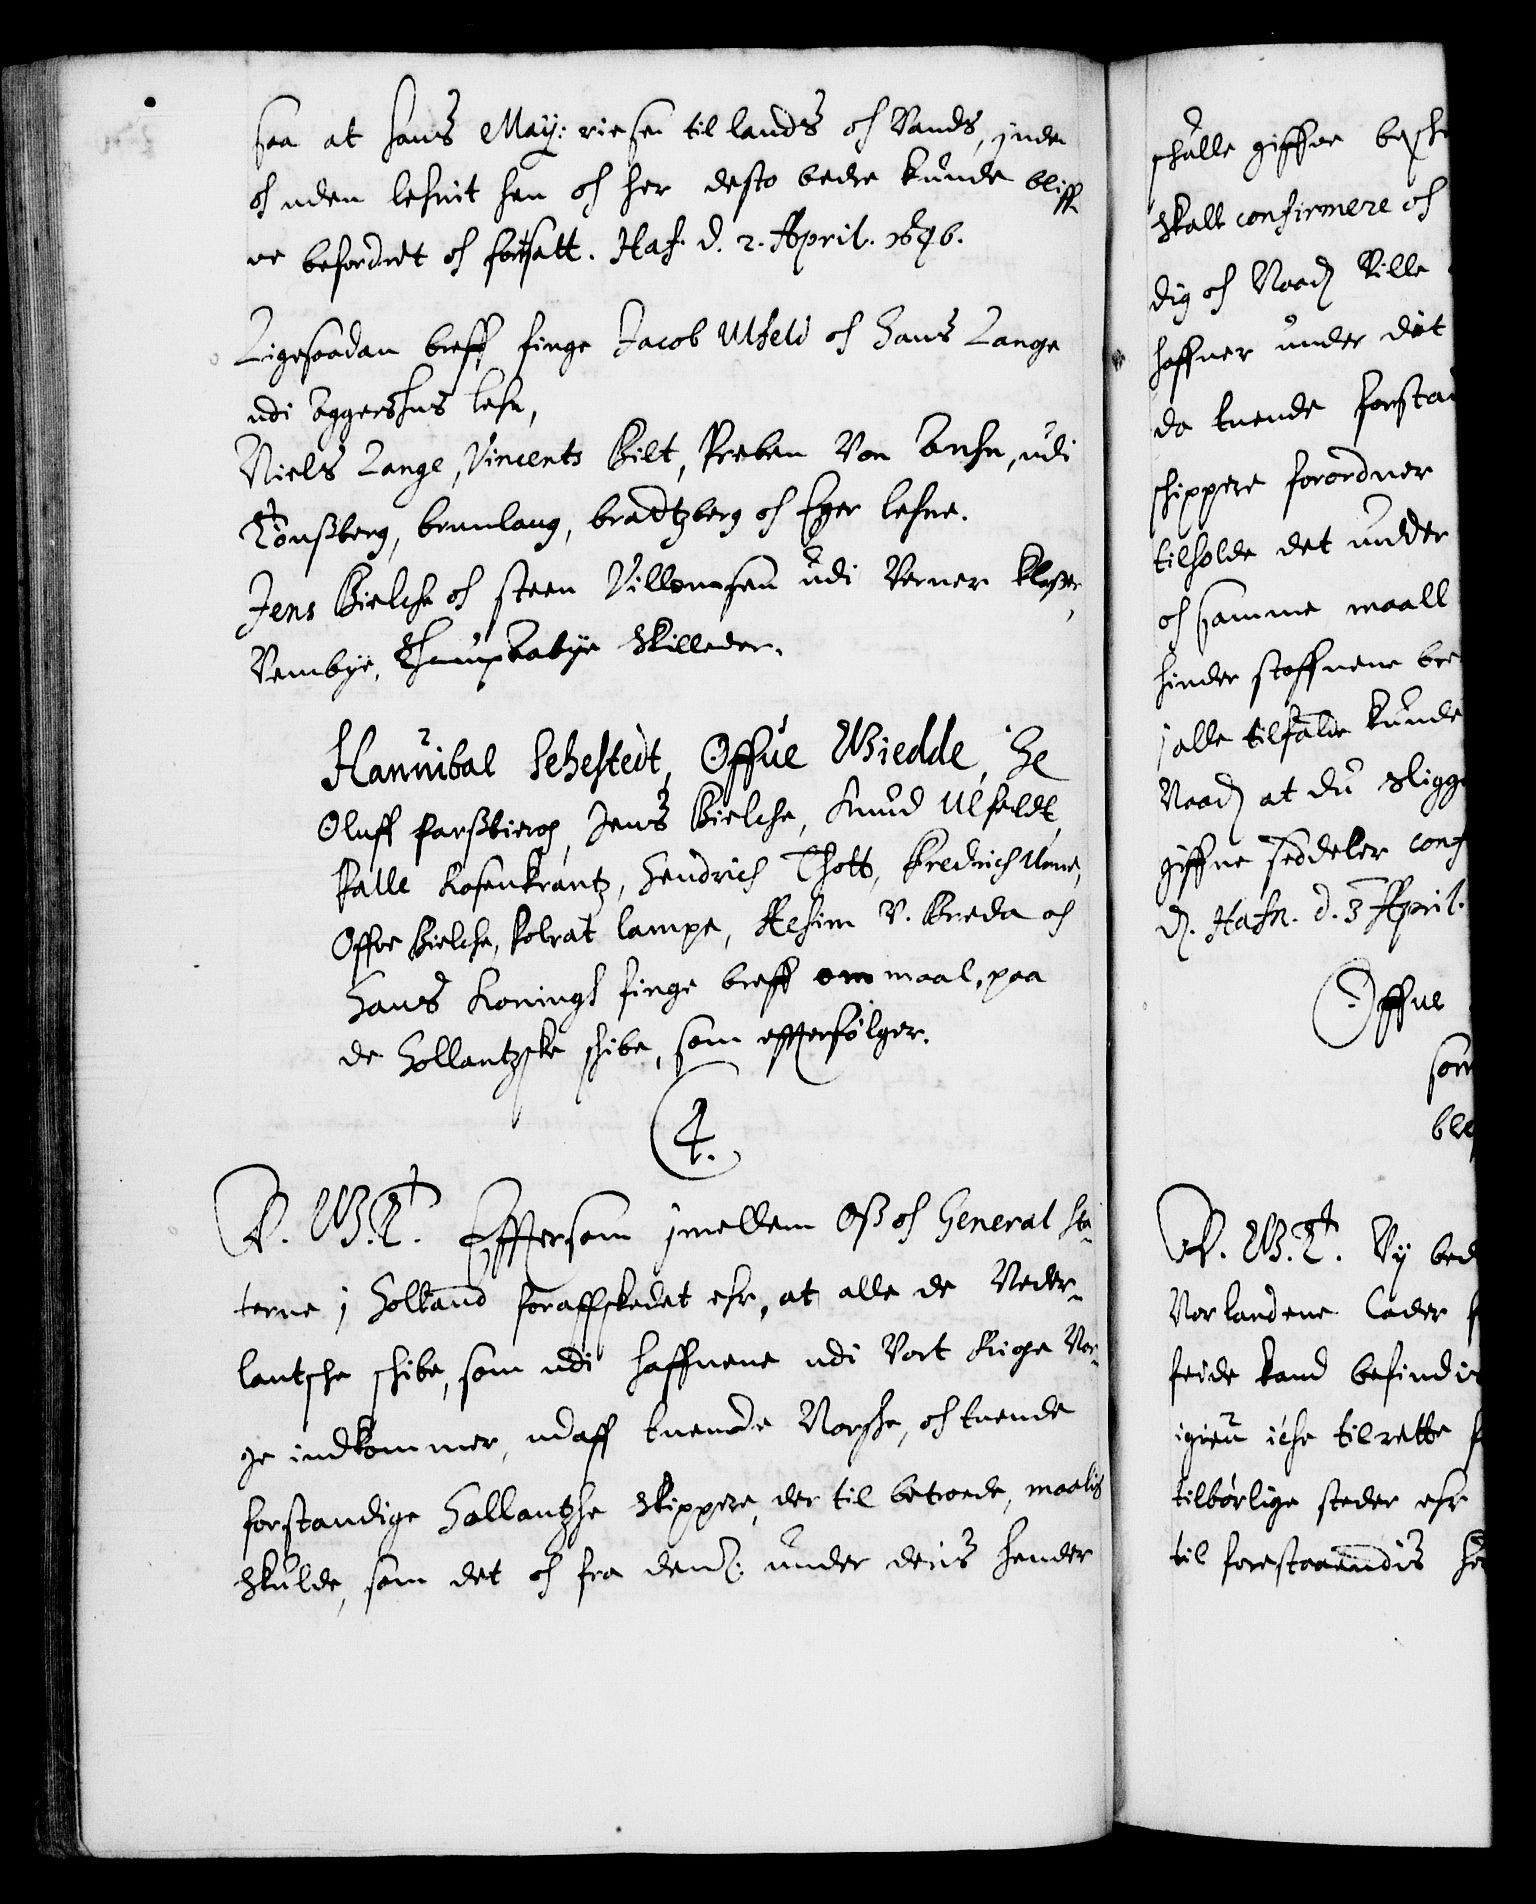 saa at hans May: riese til lands och Vands, inden
och uden lehnit hen och her desto bedre kunde bliff¬
ve befordret och fortsatt. Haf. d. 2. April. 1646.
Ligesaadan breff finge Jacob Ulfeld och Hans Lange
udi Aggershus lehn,
Niels Lange, Vincents Bilt, Preben Von Anhn, udi
Tønßberg, brunlaug, bradtzberg och Eger lehne.
Jens Bielche och Steen Villomsen udi Verner Kloster,
Vembye, skilleder.
Hannibal Sehestedt, Offue Giedde, He
Oluff Parßbierg, Jens Bielche, Knud Ulfeldt,
Palle Rosenkrantz, Hendrich Thott, Fredrich Urne,
Offve Bielche, Kolrat lampe, Achim V. Breda och
Hans Konings finge breff om maal, paa
de Hollantzske schibe, som efftterfølger.
4.
C. G.V.T. Efftersom imellem Oß och General Sta¬
terne i Holland foraffskedet ehr, at alle de Neder¬
lantsche schibe, som udi haffnene udi Vort Rige Nor¬
ge indkommer, udaff tuende Norsche, och tuende
forstandige Hollantzhe Skippere, der til betroede, maalis
skulde, som det och fra dem: under deris hender
schulle giffve besch
skall confirmere och
dig och Naad. Ville
haffner under dit
da tuende forstan
schippere forordner
tilholde det under
och samme maall
hinder stoffnene bre
i alle tilfalde kunde
Naad. at du sligge
giffne seddeler conf
d. Hafn. d. 3 April.
Offue
som
ble
C. G.V.T. Vij bed
Nor landene lader
feide kand befindis
igien iche tilrette
tilbørlige steder ehr
til forestaaendis he